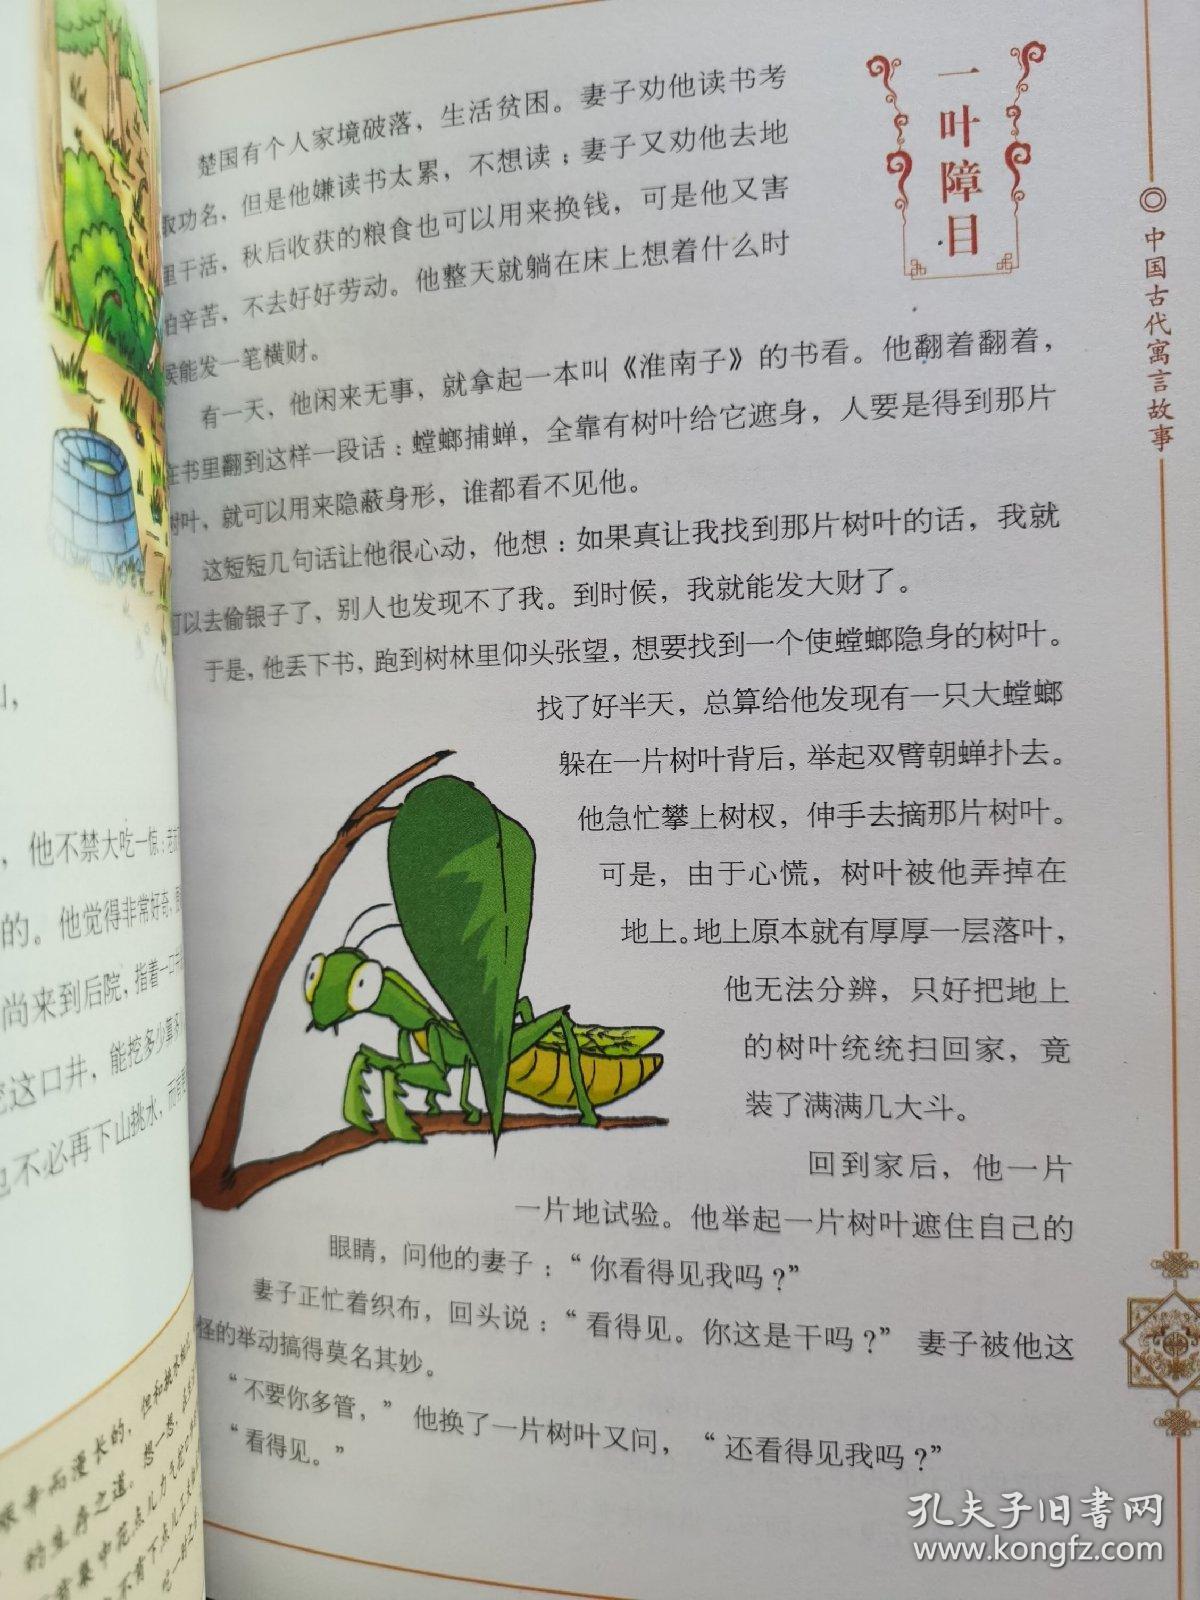 一叶障目
中国古代寓言故事
楚国有个人家境破落，生活贫困。妻子劝他读书考
取功名，但是他嫌读书太累，不想读；妻子又劝他去地
里干活，秋后收获的粮食也可以用来换钱，可是他又害
怕辛苦，不去好好劳动。他整天就躺在床上想着什么时
候能发一笔横财。
有一天，他闲来无事，就拿起一本叫《淮南子》的书看。他翻着翻着，
在书里翻到这样一段话：螳螂捕蝉，全靠有树叶给它遮身，人要是得到那片
树叶，就可以用来隐蔽身形，谁都看不见他。
这短短几句话让他很心动，他想：如果真让我找到那片树叶的话，我就
可以去偷银子了，别人也发现不了我。到时候，我就能发大财了。
于是，他丢下书，跑到树林里仰头张望，想要找到一个使螳螂隐身的树叶。
找了好半天，总算给他发现有一只大螳螂
躲在一片树叶背后，举起双臂朝蝉扑去。
他急忙攀上树杈，伸手去摘那片树叶。
可是，由于心慌，树叶被他弄掉在
地上。地上原本就有厚厚一层落叶，
他无法分辨，只好把地上
的树叶统统扫回家，竟
装了满满几大斗。
回到家后，他一片
一片地试验。他举起一片树叶遮住自己的
眼睛，问他的妻子：“你看得见我吗？”
妻子正忙着织布，回头说：“看得见。你这是干吗？” 妻子被他这
怪的举动搞得莫名其妙。
“不要你多管，” 他换了一片树叶又问，“还看得见我吗？”
“看得见。”
，他不禁大吃一惊：
的。他觉得非常好奇，
尚来到后院，指着一口井
这口井，能挖多少算
也不必再下山挑水，而
而漫长的，但和挑水相比
的生存之道。想一想，
集中花点儿力气挖
不有下点儿工夫
孔夫子旧书网
www.kongfz.com